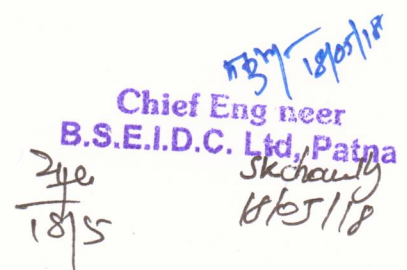 18/05/18
Chief Eng neer
B.S.E.I.D.C. Ltd, Patna
18/5
18/05/18